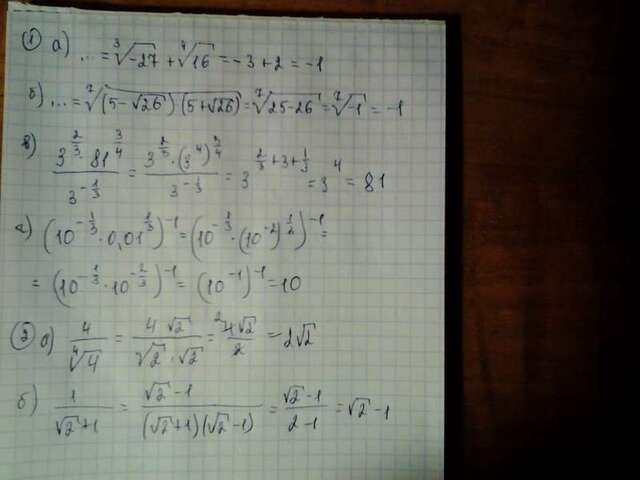 ① а) ... = ∛-27 + ∜16 = -3 + 2 = -1
б) ... = ⁷√(5-√26)(5+√26) = ⁷√25-26 = ⁷√-1 = -1
в) 3^(2/3) · 81^(3/4) / 3^(-1/3) = 3^(2/3) · (3^4)^(3/4) / 3^(-1/3) = 3^(2/3 + 3 + 1/3) = 3^4 = 81
г) (10^(-1/3) · 0,01^(1/3))^(-1) = (10^(-1/3) · (10^(-2))^(1/2))^(-1) =
= (10^(-1/3) · 10^(-2/3))^(-1) = (10^(-1))^(-1) = 10
② а) 4/∜4 = 4√2/(√2 · √2) = 4√2/2 = 2√2
б) 1/(√2+1) = (√2-1)/((√2+1)(√2-1)) = (√2-1)/(2-1) = √2-1